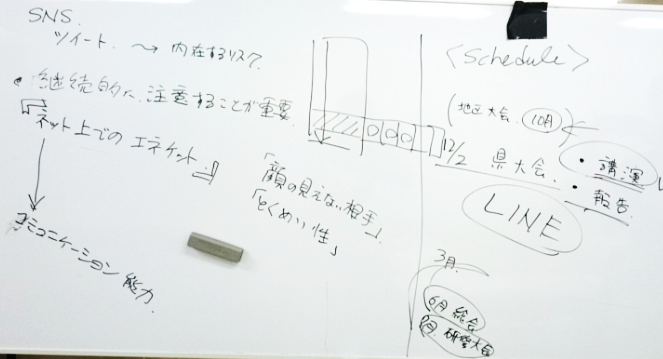 SNS.
ツイート. 〜→ 内在するリスク.
・継続的に注意することが重要.
『ネット上での エチケット.』
コミュニケーション 能力.
「顔の見えない相手」.
「とくめい性」
<Schedule>
(地区大会. 10月)
12/2 県大会.
・講演
・報告.
LINE
3月.
6月 総会
月. 研究大会